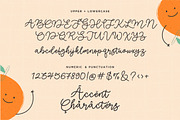 UPPER + LOWERCASE
ABCDEFGHIJKLM
NOPQRSTUVWXYZ
abcdefghijklmnopqrstuvwxyz
NUMERIC & PUNCTUATION
1234567890
Accent
Characters